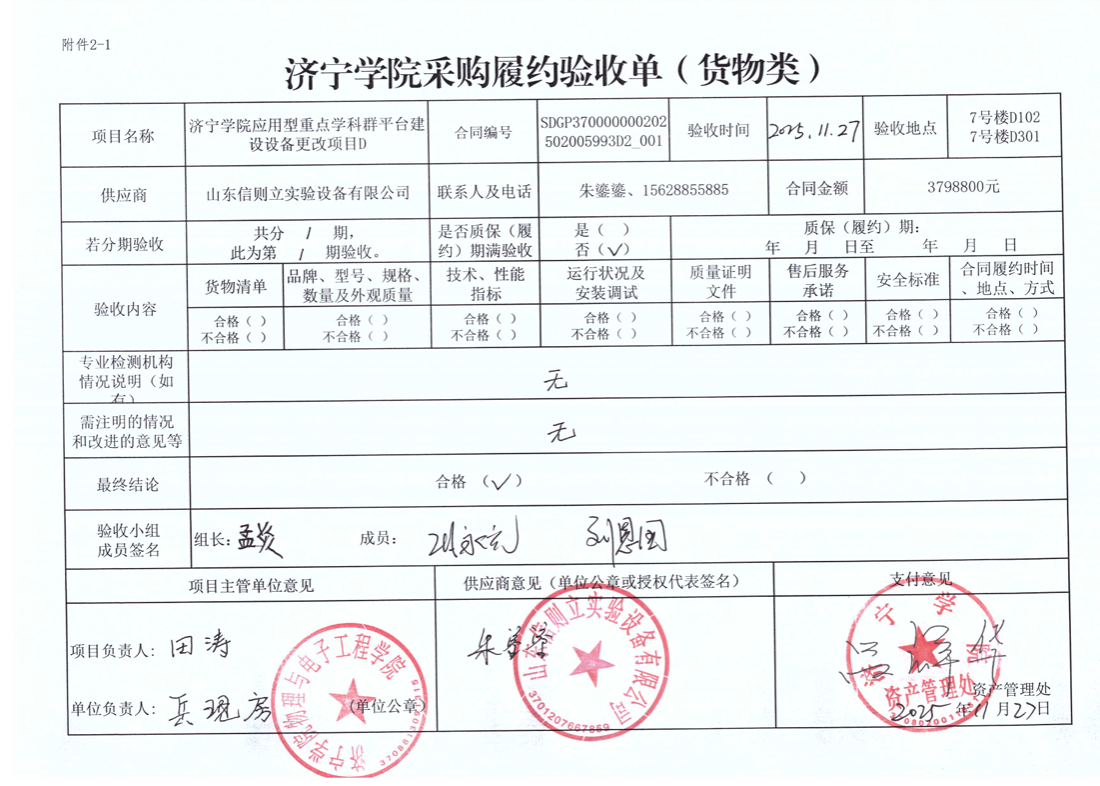 附件2-1
济宁学院采购履约验收单（货物类）
项目名称
济宁学院应用型重点学科群平台建
设设备更改项目D
合同编号
SDGP370000000202
502005993D2_001
验收时间
2025.11.27
验收地点
7号楼D102
7号楼D301
供应商
山东信则立实验设备有限公司
联系人及电话
朱鎏鎏、15628855885
合同金额
3798800元
若分期验收
共分 / 期，
此为第 / 期验收。
是否质保（履
约）期满验收
是（ ）
否（✓）
质保（履约）期：
年 月 日至 年 月 日
验收内容
货物清单
品牌、型号、规格、
数量及外观质量
技术、性能
指标
运行状况及
安装调试
质量证明
文件
售后服务
承诺
安全标准
合同履约时间
、地点、方式
合格（ ）
不合格（ ）
合格（ ）
不合格（ ）
合格（ ）
不合格（ ）
合格（ ）
不合格（ ）
合格（ ）
不合格（ ）
合格（ ）
不合格（ ）
合格（ ）
不合格（ ）
合格（ ）
不合格（ ）
专业检测机构
情况说明（如
有）
无
需注明的情况
和改进的意见等
无
最终结论
合格 （✓）
不合格 （ ）
验收小组
成员签名
组长：
成员：
刘恩国
项目主管单位意见
供应商意见（单位公章或授权代表签名）
支付意见
项目负责人：田涛
单位负责人：
（单位公章）
济宁学院物理与电子工程学院
山东信则立实验设备有限公司
3701207667869
济宁学院
资产管理处
资产管理处
2025年11月27日